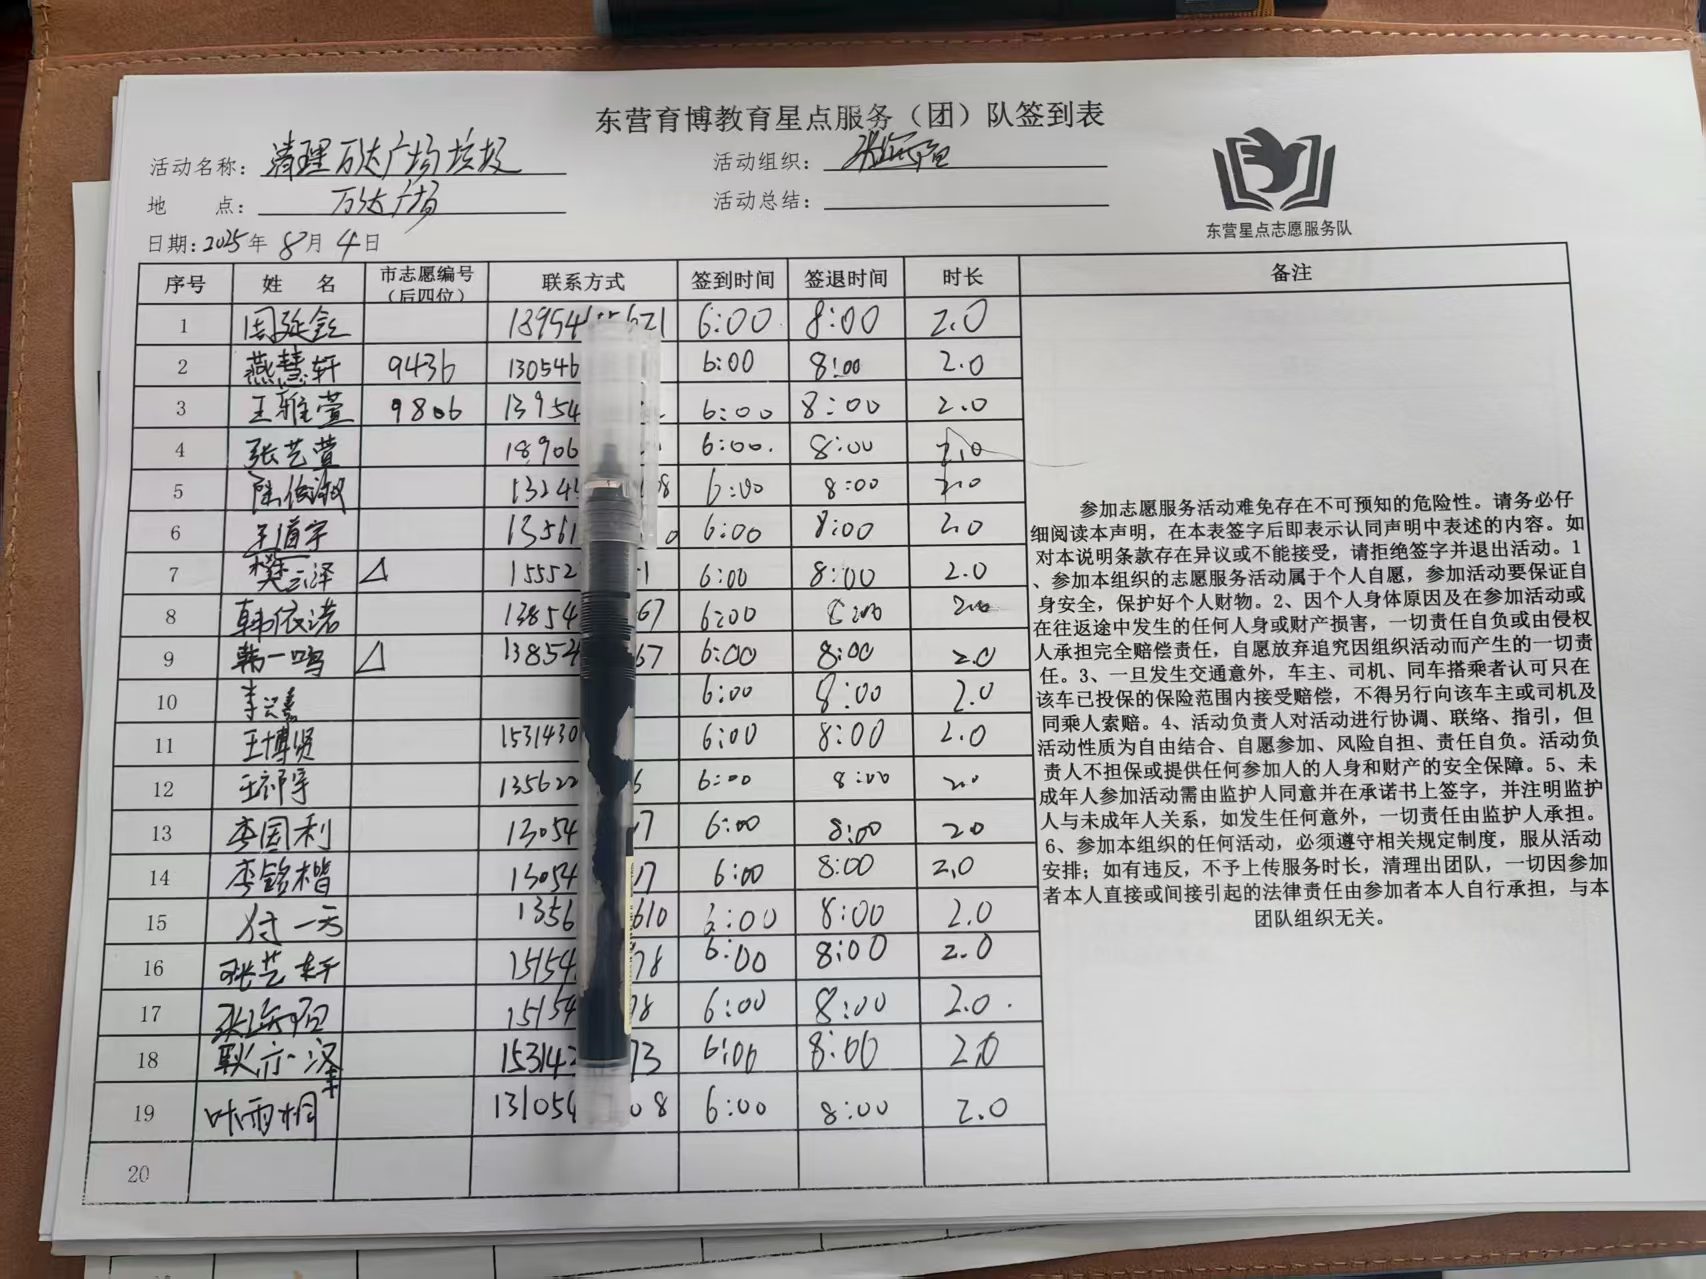 东营育博教育星点服务（团）队签到表
活动名称：清理万达广场垃圾 活动组织：
地 点：万达广场 活动总结：
东营星点志愿服务队
日期：2025年8月4日
序号 姓 名 市志愿编号（后四位） 联系方式 签到时间 签退时间 时长 备注
1 6:00 8:00 2.0
2 燕慧轩 9436 130546 6:00 8:00 2.0
3 王雅萱 9806 13954 6:00 8:00 2.0
4 张艺萱 18906 6:00 8:00 2.0
5 1324 6:00 8:00 2.0
6 王道宇 13561 6:00 8:00 2.0
7 樊云泽 △ 15552 1 6:00 8:00 2.0
8 韩依诺 13854 67 6:00 8:00 2.0
9 韩一鸣 △ 13854 67 6:00 8:00 2.0
10 6:00 8:00 2.0
11 王博贤 1531430 6:00 8:00 2.0
12 135622 6:00 8:00 2.0
13 李国利 13054 7 6:00 8:00 2.0
14 李铭楷 13054 7 6:00 8:00 2.0
15 付一 1356 610 6:00 8:00 2.0
16 张艺轩 15154 78 6:00 8:00 2.0
17 15154 78 6:00 8:00 2.0
18 耿亦泽 153142 73 6:00 8:00 2.0
19 雨桐 131054 08 6:00 8:00 2.0
20
参加志愿服务活动难免存在不可预知的危险性。请务必仔
细阅读本声明，在本表签字后即表示认同声明中表述的内容。如
对本说明条款存在异议或不能接受，请拒绝签字并退出活动。1
、参加本组织的志愿服务活动属于个人自愿，参加活动要保证自
身安全，保护好个人财物。2、因个人身体原因及在参加活动或
在往返途中发生的任何人身或财产损害，一切责任自负或由侵权
人承担完全赔偿责任，自愿放弃追究因组织活动而产生的一切责
任。3、一旦发生交通意外，车主、司机、同车搭乘者认可只在
该车已投保的保险范围内接受赔偿，不得另行向该车主或司机及
同乘人索赔。4、活动负责人对活动进行协调、联络、指引，但
活动性质为自由结合、自愿参加、风险自担、责任自负。活动负
责人不担保或提供任何参加人的人身和财产的安全保障。5、未
成年人参加活动需由监护人同意并在承诺书上签字，并注明监护
人与未成年人关系，如发生任何意外，一切责任由监护人承担。
6、参加本组织的任何活动，必须遵守相关规定制度，服从活动
安排；如有违反，不予上传服务时长，清理出团队，一切因参加
者本人直接或间接引起的法律责任由参加者本人自行承担，与本
团队组织无关。